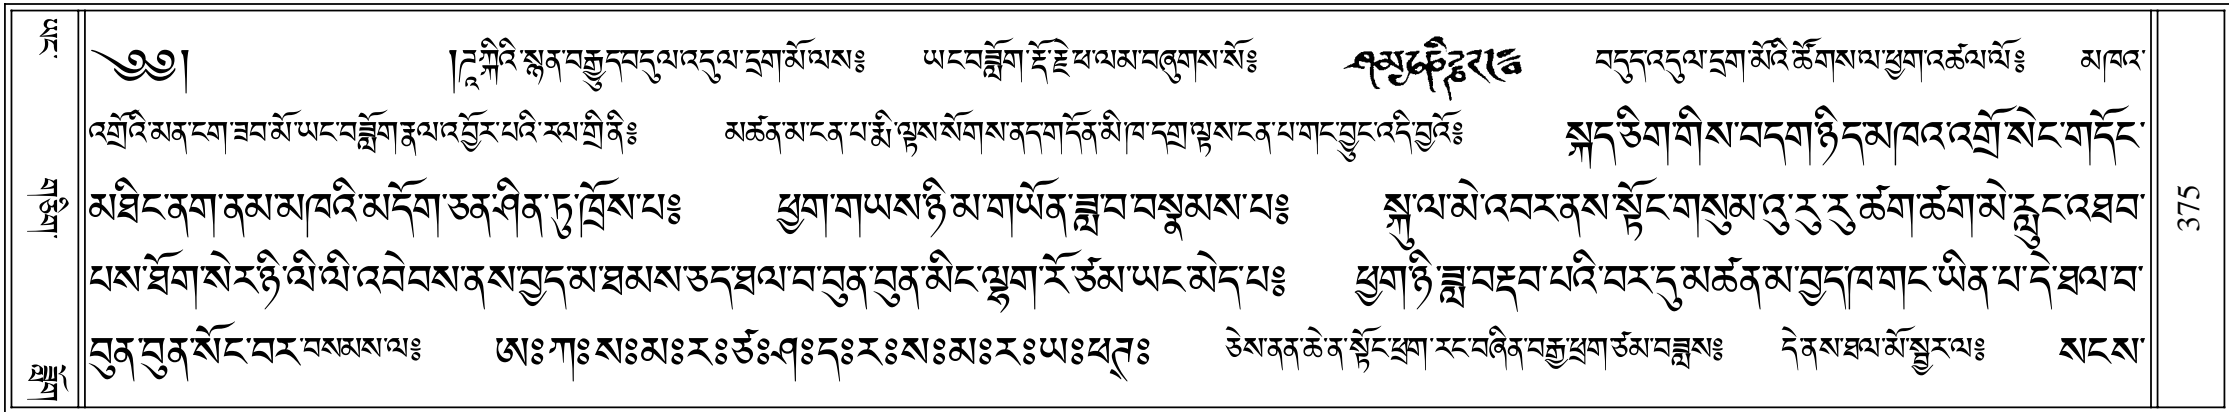 ༄༅། །ཌཱཀྐིའི་སྙན་བརྒྱུད་བདུད་འདུལ་དྲག་མོ་ལས༔ ཡང་བཟློག་རྡོ་རྗེ་ཕ་ལམ་བཞུགས་སོ༔ བདུད་འདུལ་དྲག་མོའི་ཚོགས་ལ་ཕྱག་འཚལ་ལོ༔ མཁའ་
འགྲོའི་མན་ངག་ཟབ་མོ་ཡང་བཟློག་རྣལ་འབྱོར་པའི་རལ་གྲི་ནི༔ མཚན་མ་ངན་པ་རྨི་ལྟས་སོགས་ནད་གདོན་མི་ཁ་དགྲ་ལྟས་ངན་པ་གང་བྱུང་འདི་བྱའོ༔ སྐད་ཅིག་གིས་བདག་ཉིད་མཁའ་འགྲོ་སེང་གདོང་
མཐིང་ནག་ནམ་མཁའི་མདོག་ཅན་ཤིན་ཏུ་ཁྲོས་པ༔ ཕྱག་གཡས་ཉི་མ་གཡོན་ཟླ་བ་བསྣམས་པ༔ སྐུ་ལ་མེ་འབར་ནས་སྟོང་གསུམ་འུ་རུ་རུ་ཚག་ཚག་མེ་རླུང་འཐབ་
པས་ཐོག་སེར་ཉི་ལི་ལི་འབེབས་ནས་བྱད་མ་ཐམས་ཅད་ཐལ་བ་བུན་བུན་མིང་ལྷག་རོ་ཙམ་ཡང་མེད་པ༔ ཕྱག་ཉི་ཟླ་བརྡབ་པའི་བར་དུ་མཚན་མ་བྱད་ཁ་གང་ཡིན་པ་དེ་ཐལ་བ་
བུན་བུན་སོང་བར་བསམས་ལ༔ ཨ༔ ཀ༔ ས༔ མ༔ ར༔ ཙ༔ ཤ༔ ད༔ ར༔ ས༔ མ༔ ར༔ ཡ༔ ཕཊ༔ ཅེས་ནན་ཆེ་ན་སྟོང་ཕྲག་རང་བཞིན་བརྒྱ་ཕྲག་ཙམ་བཟླས༔ དེ་ནས་ཐལ་མོ་སྦྱར་ལ༔ སངས་
ཡང་
གཅིག་
བཟློག
375